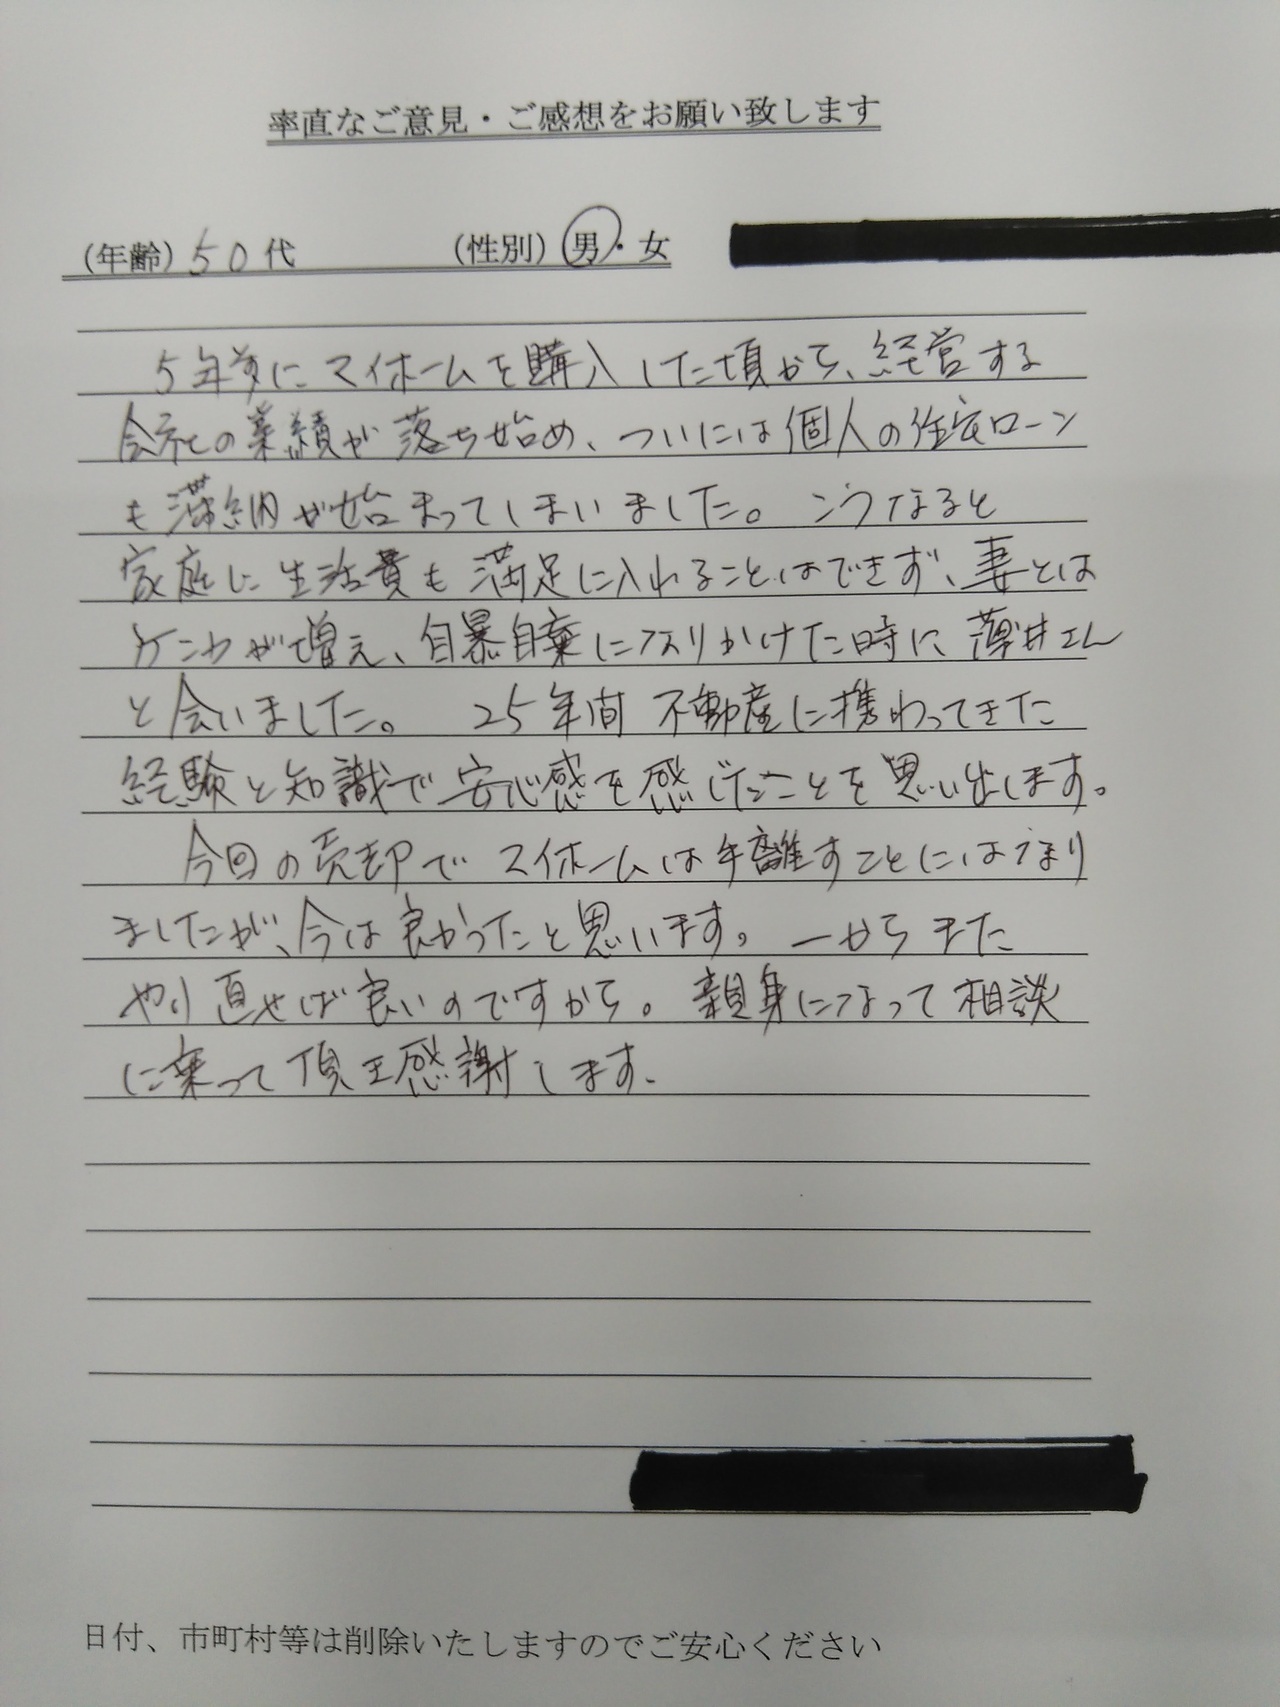 率直なご意見・ご感想をお願い致します
(年齢) 50代 (性別) 男・女
5年前にマイホームを購入した頃から、経営する
会社の業績が落ち始め、ついには個人の住宅ローン
も滞納が始まってしまいました。こうなると
家庭に生活費も満足に入れることはできず、妻とは
ケンカが増え、自暴自棄になりかけた時に、薄井さん
と会いました。 25年間不動産に携わってきた
経験と知識で安心感を感じたことを思い出します。
今回の売却でマイホームは手離すことにはなり
ましたが、今は良かったと思います。一からまた
やり直せば良いのですから。親身になって相談
に乗って頂き感謝します。
日付、市町村等は削除いたしますのでご安心ください